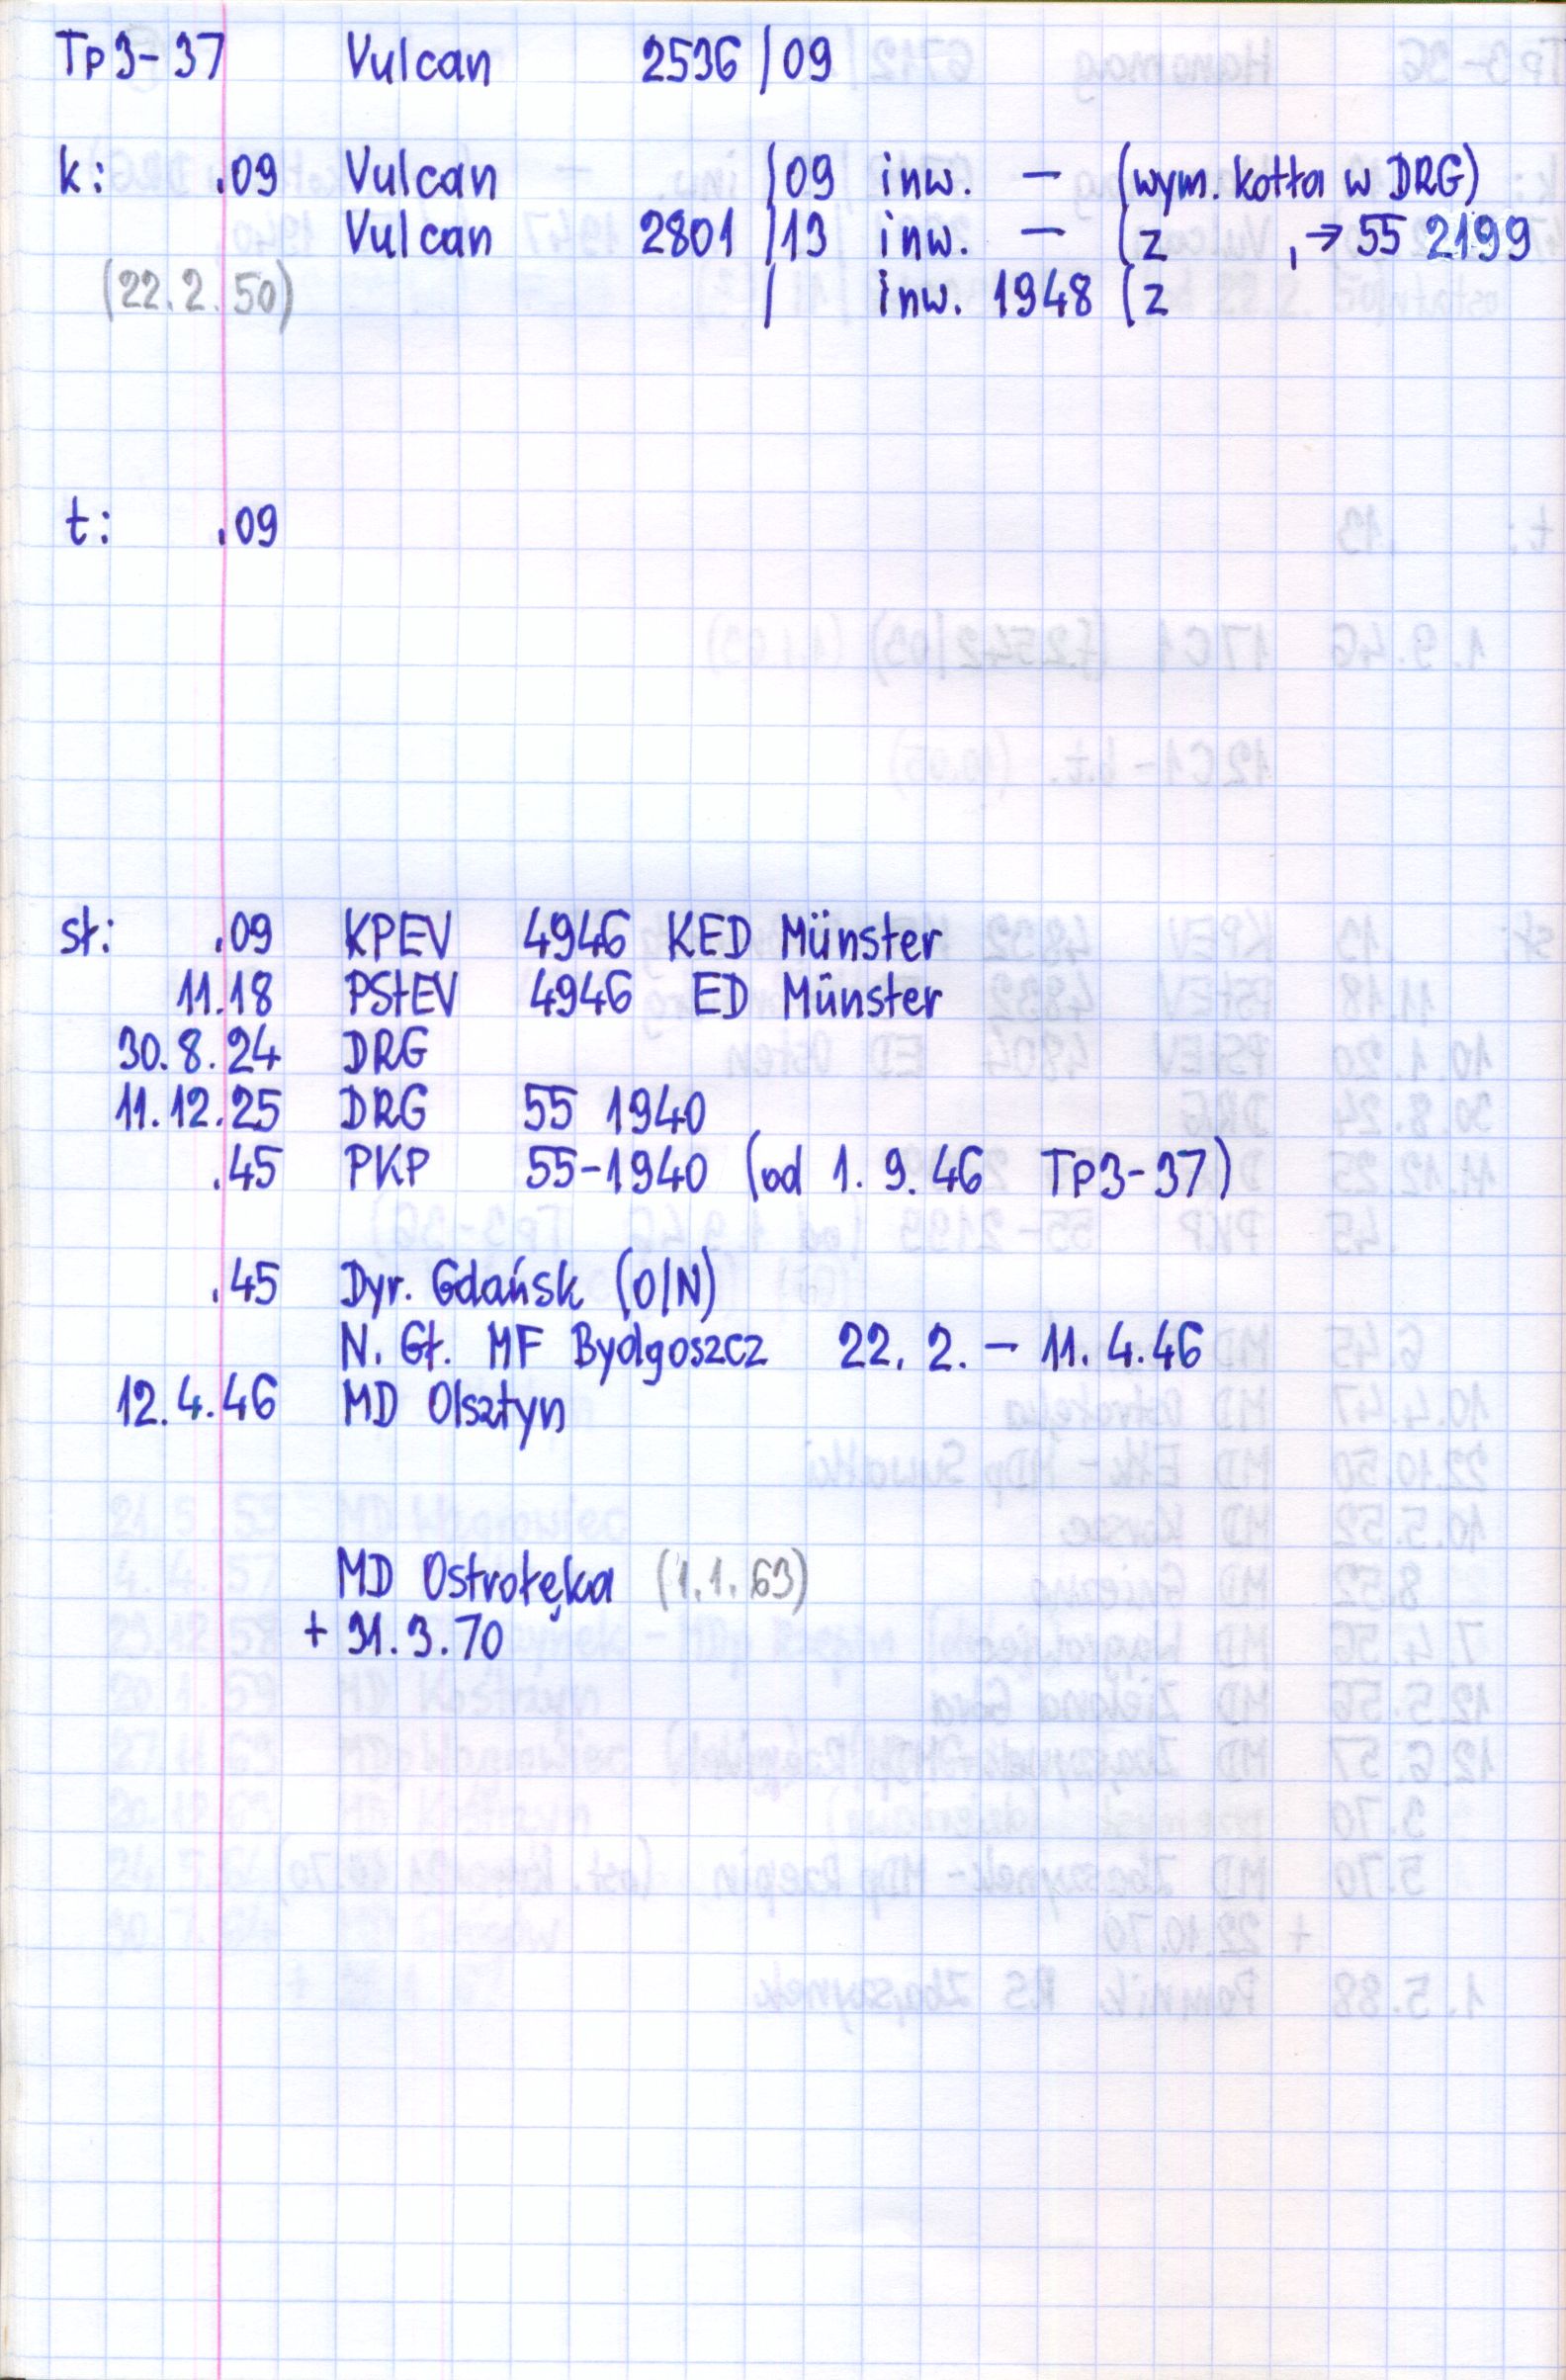 Tp3-37 Vulcan 2536/09
k: .09 Vulcan /09 inw. – (wym. kotła w DRG)
Vulcan 2801/13 inw. – (z , → 55 2199
(22.2.50) / inw. 1948 (z
t: .09
st: .09 KPEV 4946 KED Münster
11.18 PStEV 4946 ED Münster
30.8.24 DRG
11.12.25 DRG 55 1940
.45 PKP 55-1940 (od 1.9.46 Tp3-37)
.45 Dyr. Gdańsk (O/N)
N. Gł. MF Bydgoszcz 22.2. – 11.4.46
12.4.46 MD Olsztyn
MD Ostrołęka (1.1.63)
+ 31.3.70